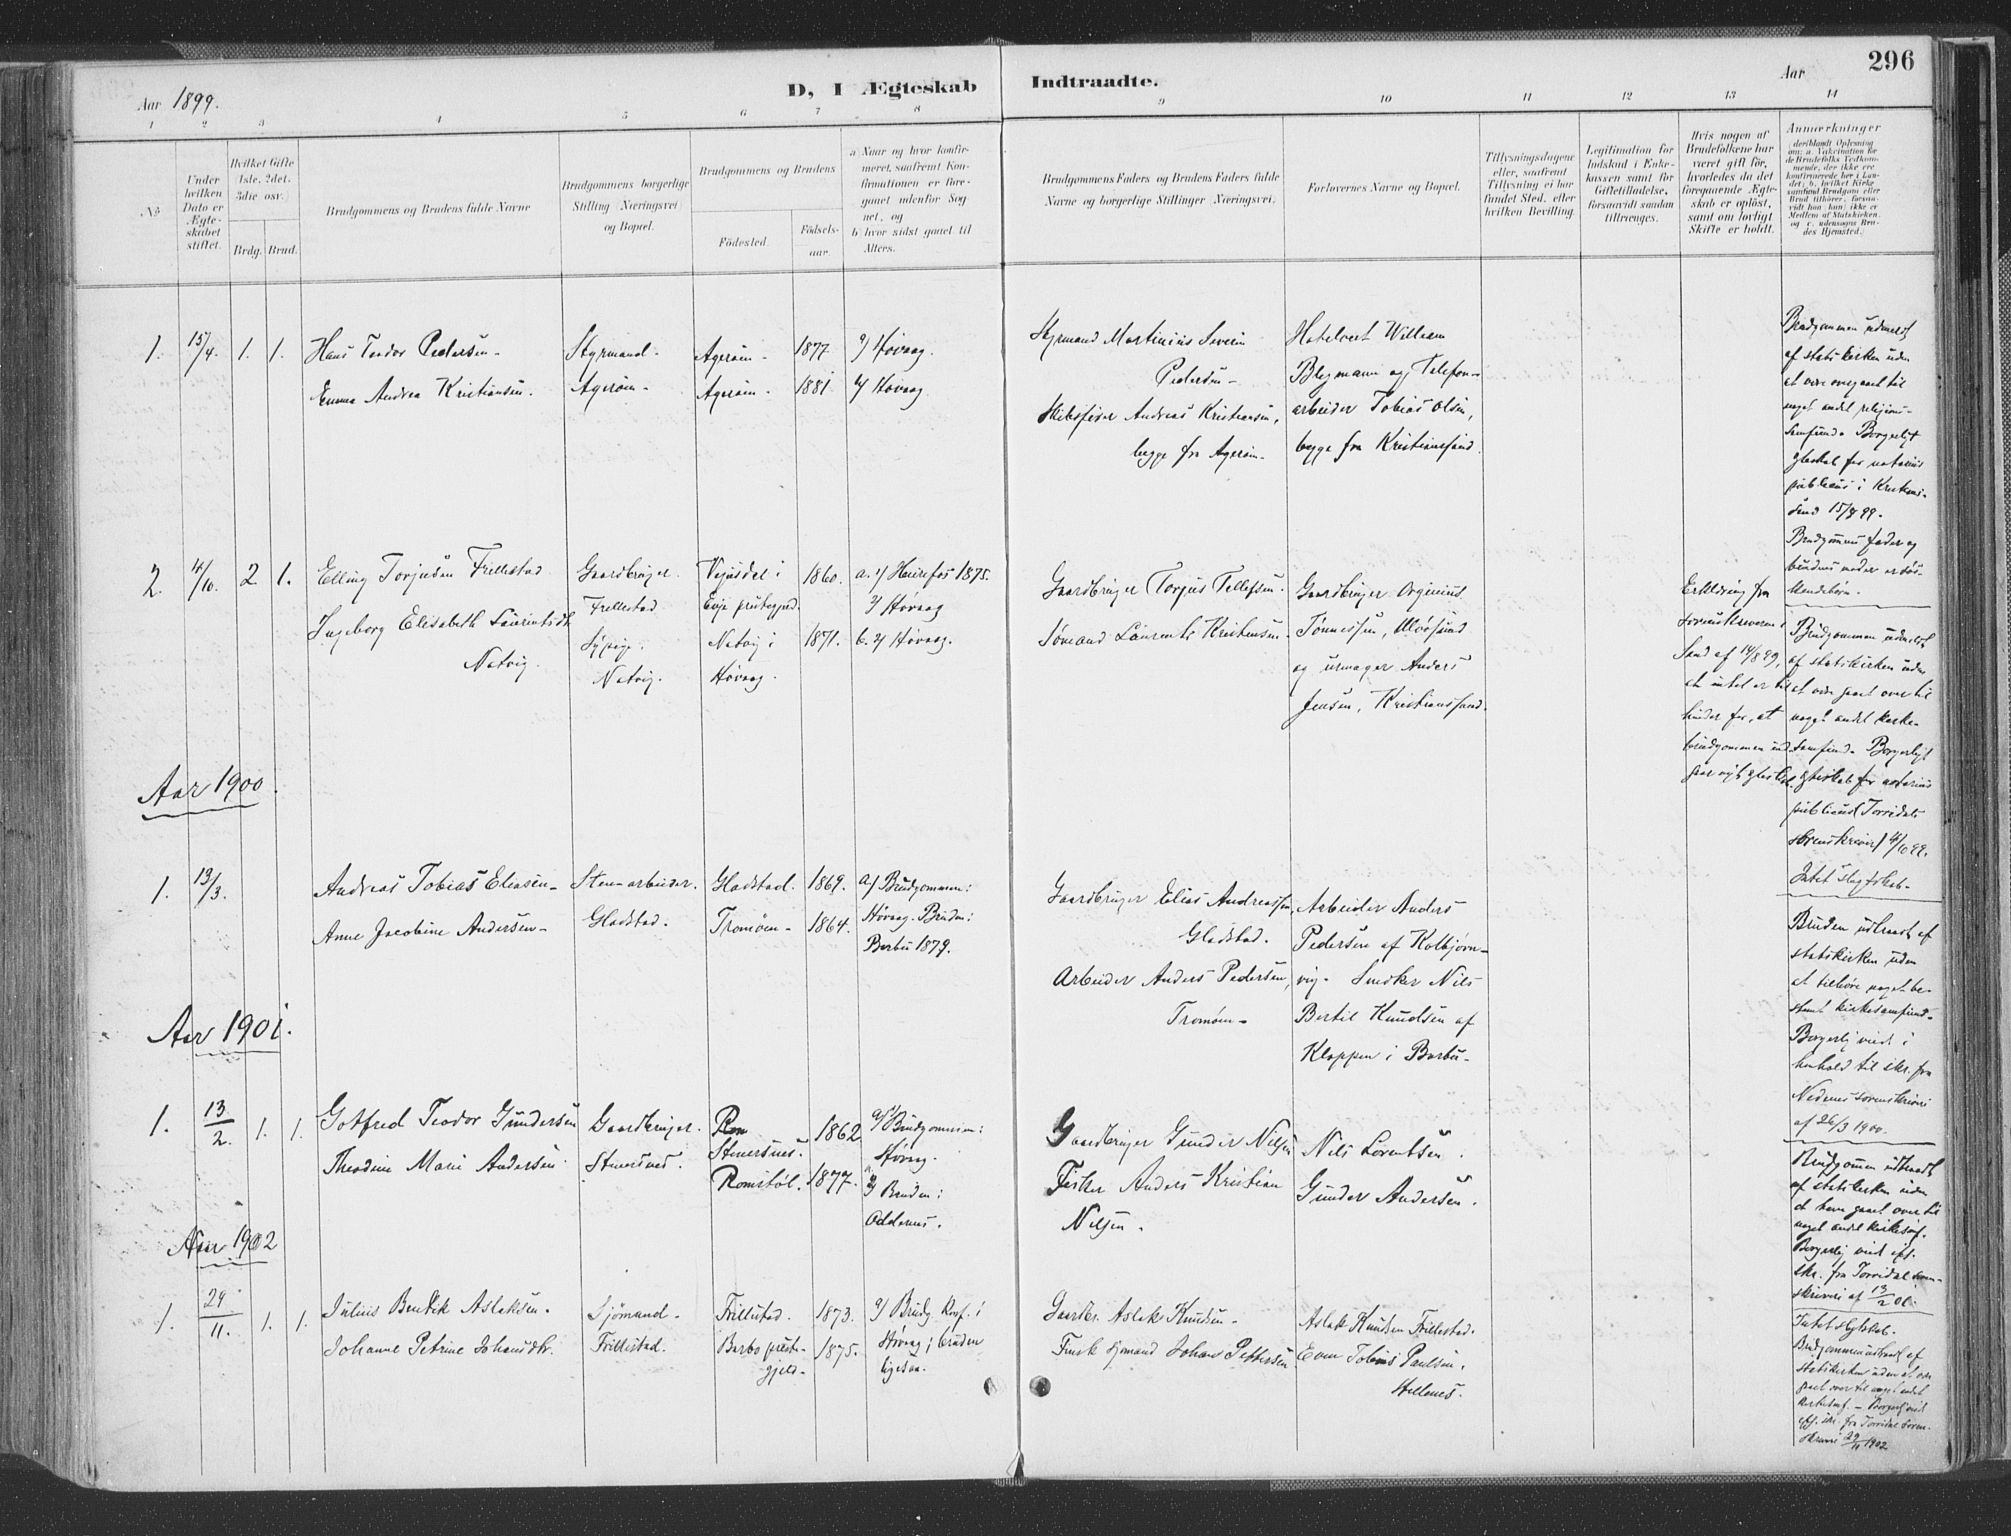 296
Aar 1899.
D, I Ægteskab Indtraadte.
Aar
1 2 3 4 5 6 7 8 9 10 11 12 13 14
No
Under hvilken Dato er Ægteskabet stiftet.
Hvilket Gifte 1ste, 2det, 3die osv.
Brdg. Brud.
Brudgommens og Brudens fulde Navne
Brudgommens borgerlige Stilling (Næringsvei) og Bopæl.
Brudgommens og Brudens
Fødested.
Fødselsaar
a Naar og hvor konfirmeret, saafremt Konfirmationen er foregaaet udenfor Sognet, og
b hvor sidst gaaet til Alters.
Brudgommens Faders og Brudens Faders fulde Navne og borgerlige Stillinger (Næringsvei)
Forlovernes Navne og Bopæl.
Tillysningsdagene eller, saafremt Tillysning ei har fundet Sted, efter hvilken Bevilling.
Legitimation for Indskud i Enkekassen samt for Giftetilladelse, forsaavidt saadan tiltrænges.
Hvis nogen af Brudefolkene har været gift før, hvorledes da det foregaaende Ægteskab er opløst, samt om lovligt Skifte er holdt.
Anmærkninger
1. 15/4. 1. 1.
Hans Teodor Pedersen
Emma Andrea Kristiansen.
Styrmand.
Agerøen
Agerøen 1877
Agerøen 1881.
Høvaag.
Høvaag
Martinius Severin
Pedersen
Andreas Kristiansen,
begge fra Agerøen
Hotelvert William
Blegmann og Telefon-
arbeider Tobias Olsen,
begge fra Kristianssand.
Brudgommen udmeldt
af statskirken uden
Borgerligt
15/4 99.
Brudgommens fader og
brudens moder er søs-
kendebørn.
2. 4/10. 2 1.
Elling Torjusen Frillestad
Ingeborg Elisabeth Laurintsdt.
Natvig.
Gaardbruger.
Frillestad
Natvig.
1860.
Natvig i
Høvaag. 1871.
1875.
Høvaag
Høvaag.
Gaardbruger Torjus Tellefsen.
Sømand Laurents Kristensen
Gaardbruger
Tønnessen, Ulvøsund
og urmager Anders
Jensen, Kristianssand.
Erklæring fra
Sorenskriveren i
Sand af 14/8 99,
at intet er til
hinder for, at
brudgommen ind-
Brudgommen udmeldt
af statskirken uden
at være gaaet over til
noget andet kirke-
samfund. Borgerligt
4/10 99.
Intet slægtskab.
Aar 1900.
1. 13/3.
Andreas Tobias Eliasen
Anne Jacobine Andersen
Stenarbeider.
Gladstad.
Gladstad. 1869.
Tromøen 1864.
a) Brudgommen:
Høvaag. Bruden:
Barbu 1879.
Gaardbruger Elias Andreassen,
Gladstad.
Arbeider Anders Pedersen,
Tromøen
Arbeider Anders
Pedersen af Kolbjørn-
vig. Snedker Nils
Bertil Knudsen af
Kloppen i Barbu
Bruden udtraadt af
statskirken uden
at tilhøre noget be-
stemt kirkesamfund.
Borgerlig viet i
henhold til skr. fra
Nedenes sorenskriveri
af 26/3 1900.
Aar 1901.
1. 13/2. 1. 1.
Gotfred Teodor Gundersen
Theodine Marie Andersen
Gaardbruger.
Stenersnes.
Stenersnes. 1862
Romstøl. 1877.
Brudgommen:
Høvaag.
Bruden:
Oddernes.
Gaardbruger Gunder Nilsen
Fisker Anders Kristian
Nilsen.
Nils Lorentsen.
Gunder Andersen.
Brudgommen udtraadt
af statskirken uden
at have gaaet over til
noget andet kirkesamf.
Borgerlig viet eft.
skr. fra Torridal soren-
skriveri af 13/2 01.
Aar 1902
1. 29/11. 1. 1.
Julius Bendik Aslaksen.
Johanne Petrine Johansdtr.
Sjømand.
Frillestad.
Frillestad. 1873.
Barbo præste-
gjeld. 1875.
Brudg. konf. i
Høvaag; bruden
ligesaa.
Gaardbr. Aslak Knudsen
Johan Pettersen
Aslak Knudsen Frillestad.
Even Tobias Paulsen,
Intet slægtskab.
Brudgommen udtraadt af
statskirken uden at være
gaaet over til noget andet
kirkesamf. Borgerl. viet
eft. skr. fra Torridal soren-
skriveri 29/11 1902